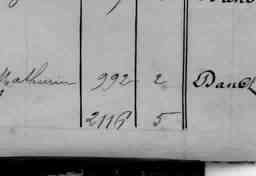 Mathurin 992 2
2116 5